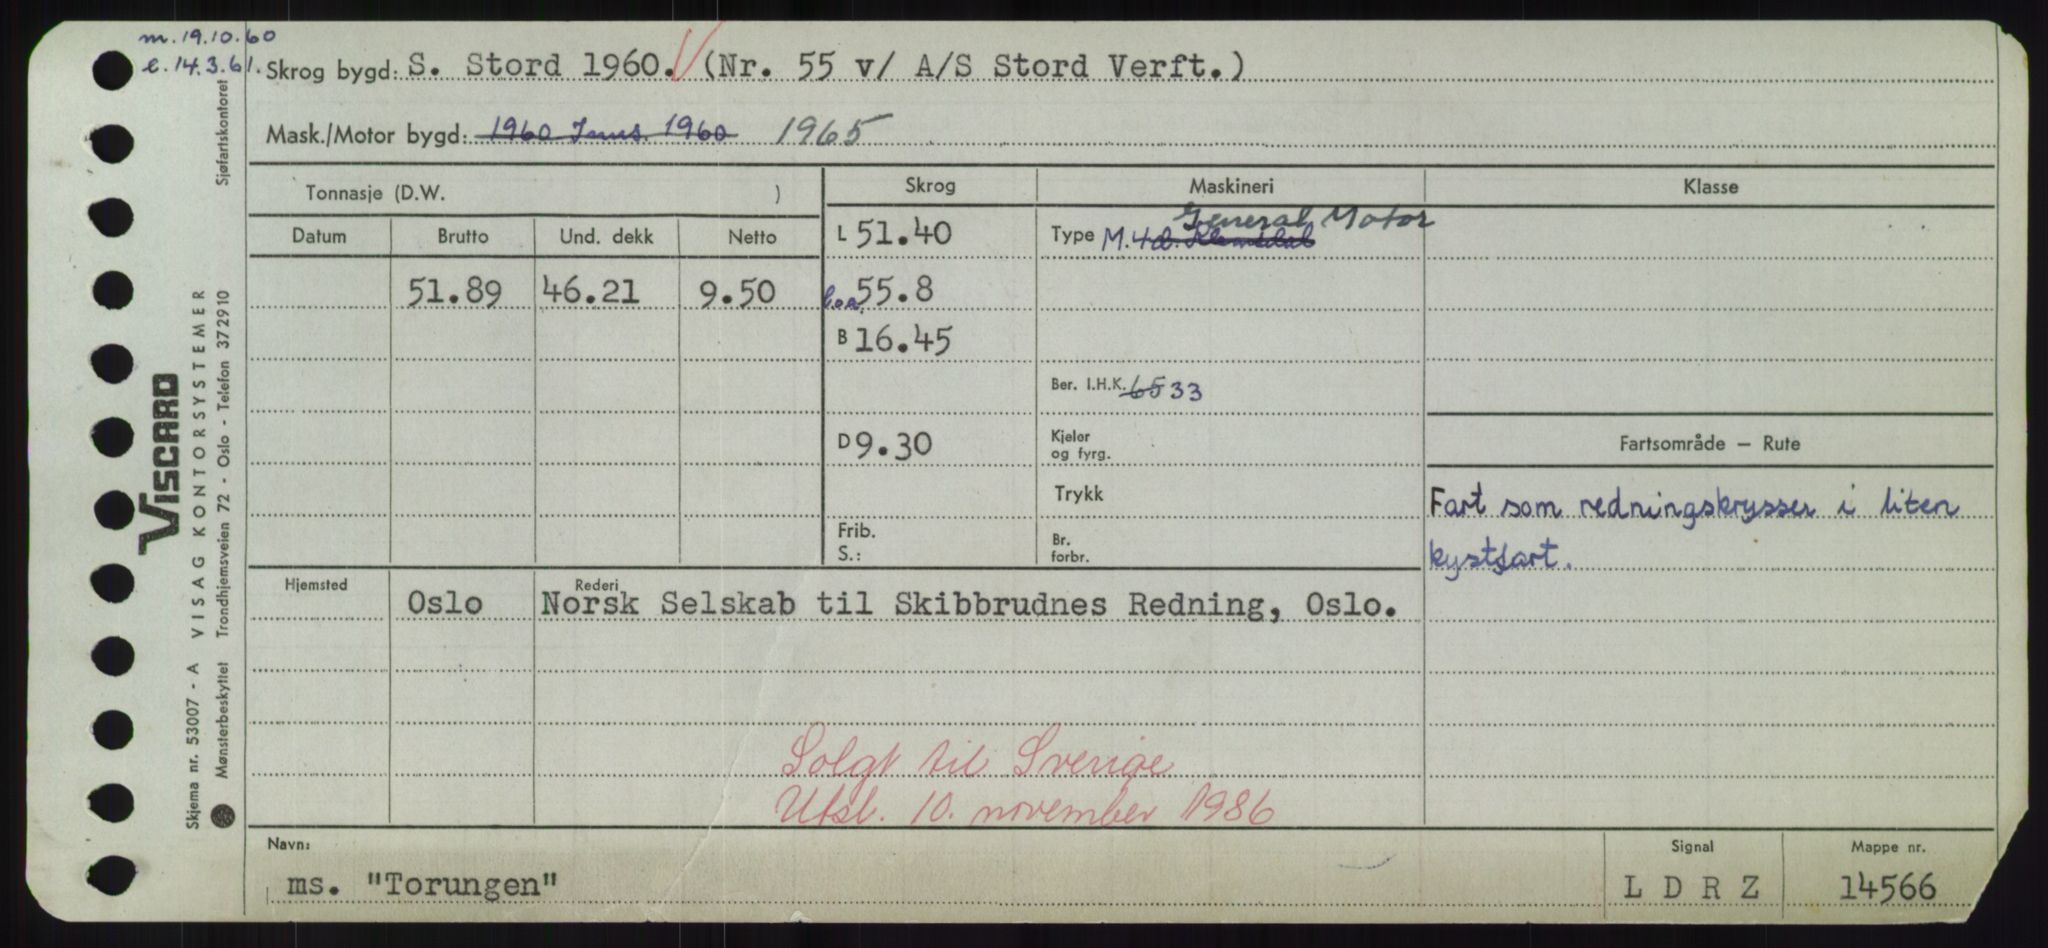 m. 19.10.60
e. 14.3.61.
Skrog bygd: S. Stord 1960. (Nr. 55 v/ A/S Stord Verft.)
Mask./Motor bygd: 1960 1960 1965
Tonnasje (D.W. )
Skrog
Maskineri
Klasse
Datum
Brutto
Und. dekk
Netto
L 51.40
Type M. 4 General Motor
51.89
46.21
9.50
l.o.a. 55.8
B 16.45
Ber. I.H.K. 65 33
D 9.30
Kjeler
og fyrg.
Fartsområde — Rute
Trykk
Fart som redningskrysser i liten
kystfart.
Frib.
S.:
Br.
forbr.
Hjemsted
Oslo
Rederi
Norsk Selskab til Skibbrudnes Redning, Oslo.
Solgt til Sverige
Utsl. 10. november 1986
Navn:
ms. "Torungen"
Signal
L D R Z
Mappe nr.
14566
VISCARD
Skjema nr. 53007 - A VISAG KONTORSYSTEMER
Mønsterbeskyttet Trondhjemsveien 72 - Oslo - Telefon 372910 Sjøfartskontoret